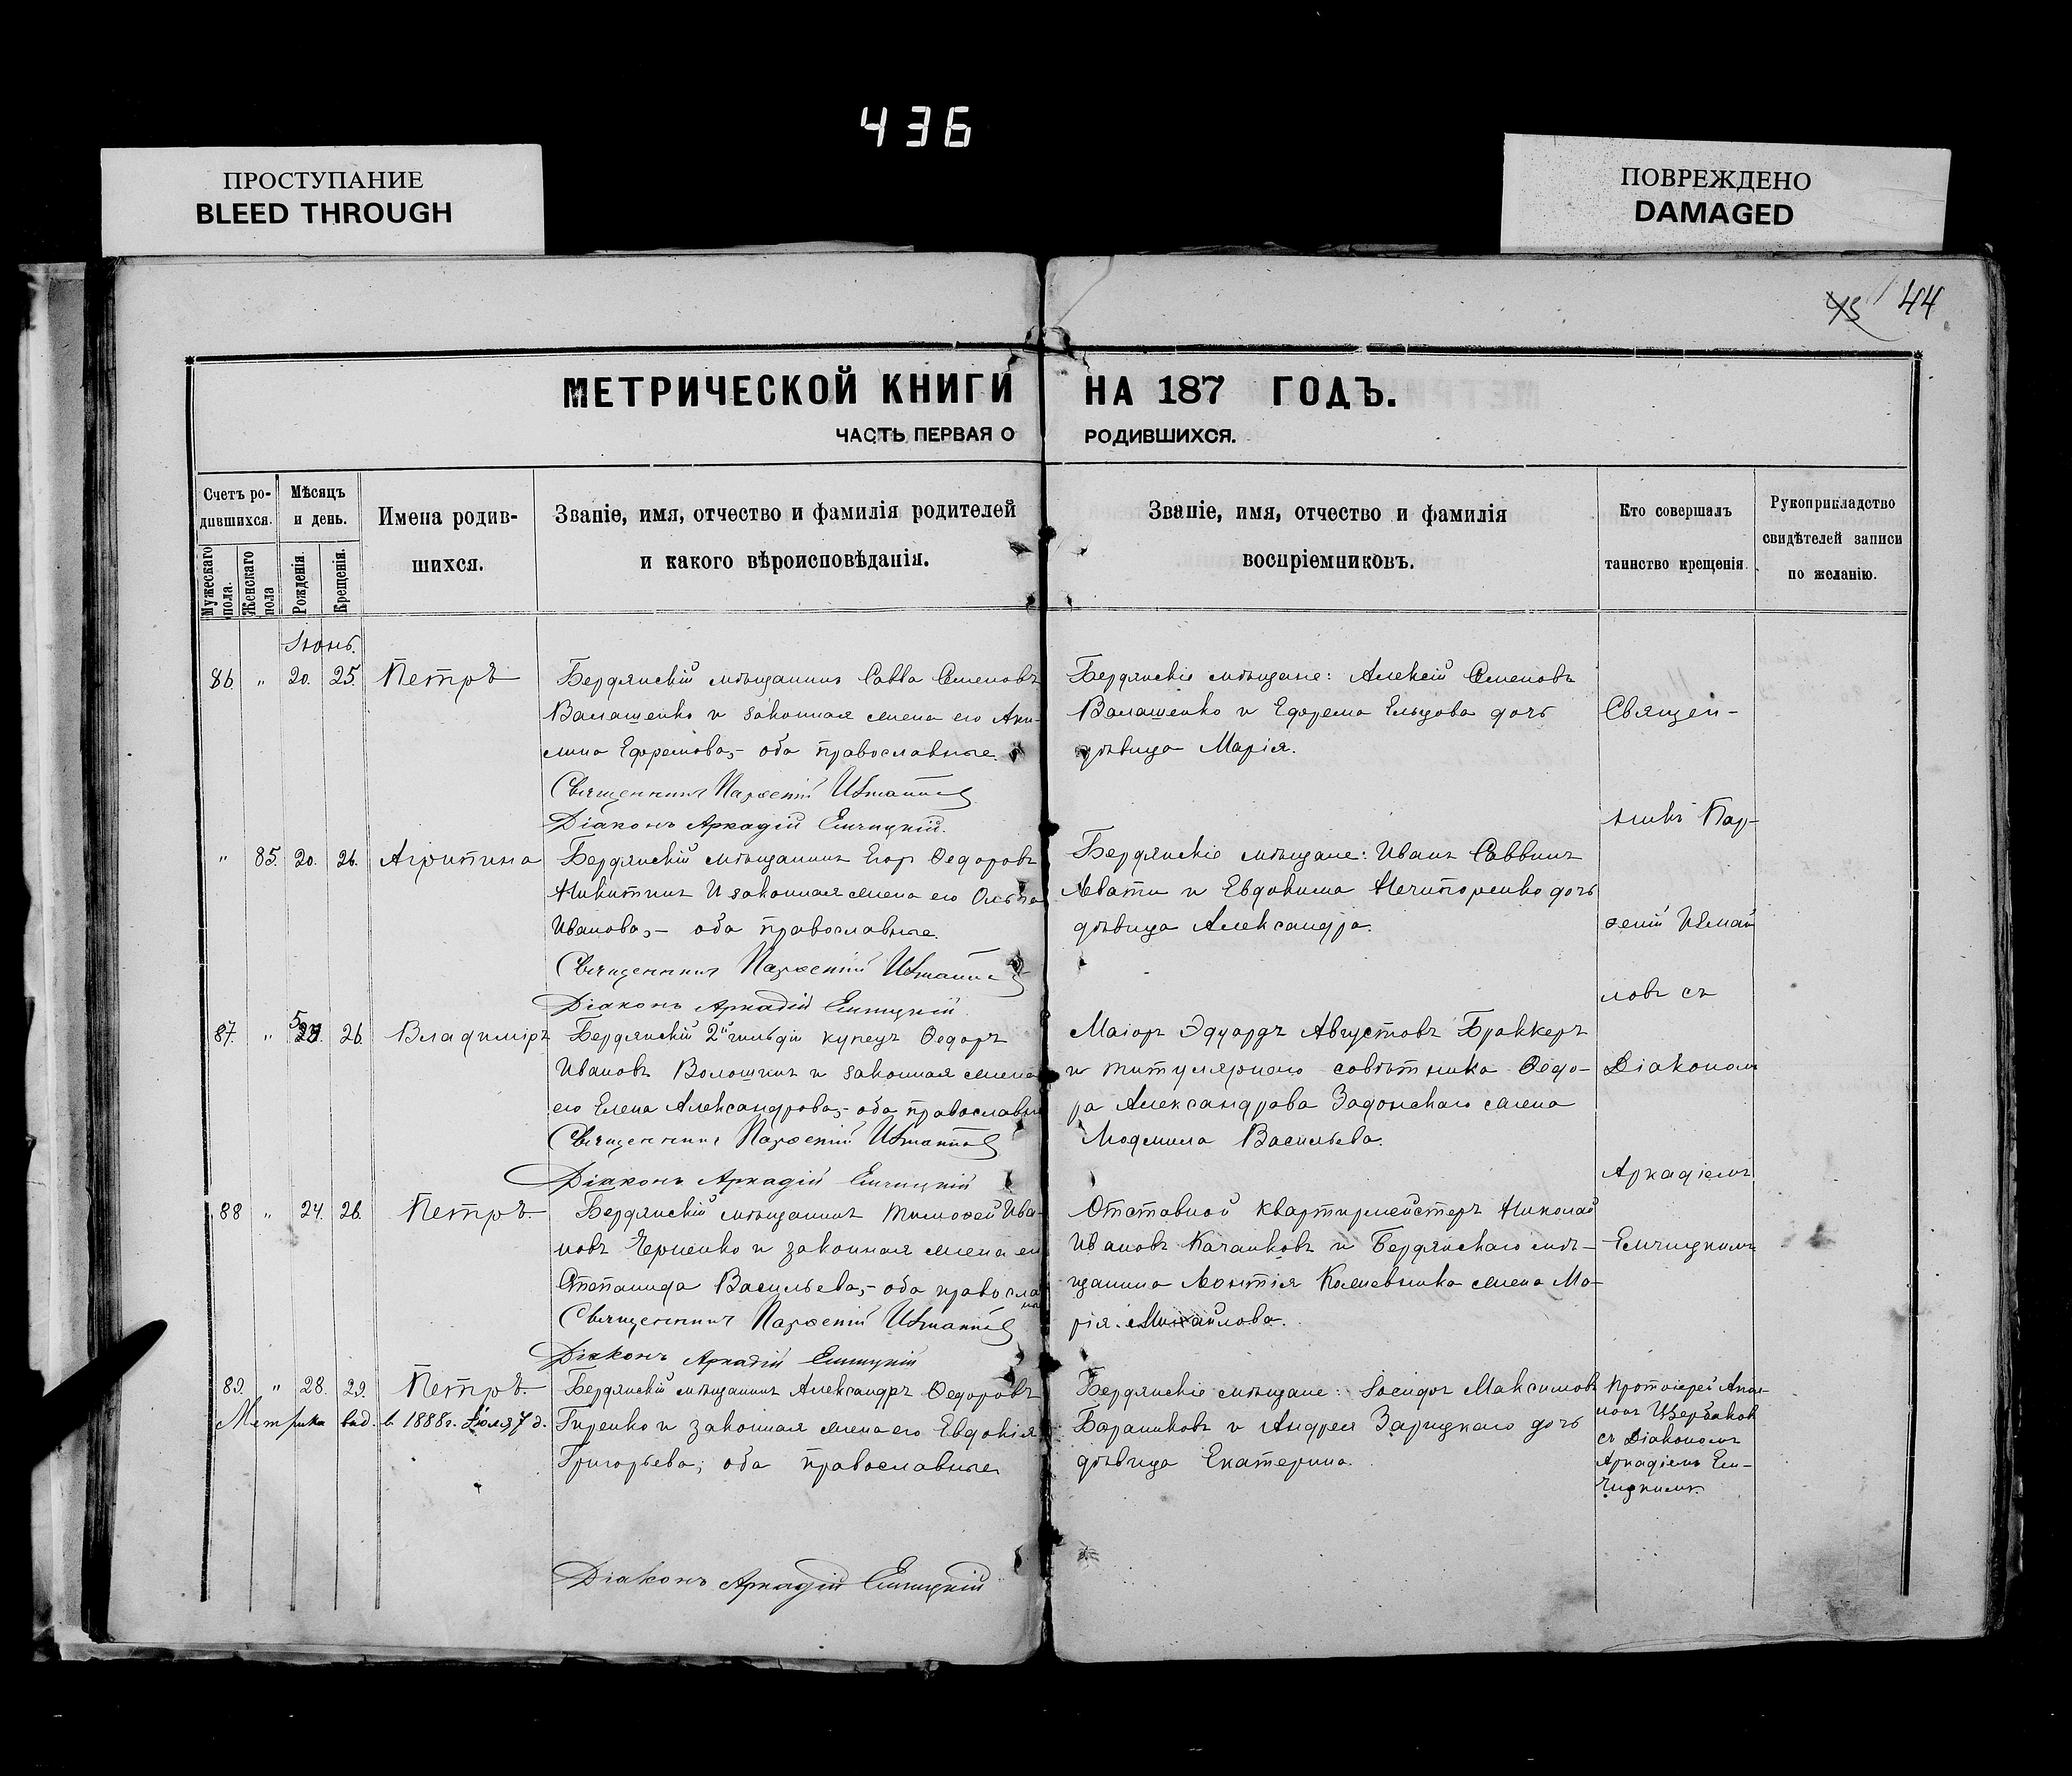 436
ПРОСТУПАНИЕ
BLEED THROUGH
ПОВРЕЖДЕНО
DAMAGED
45 44
МЕТРИЧЕСКОЙ КНИГИ НА 187 ГОДЪ.
ЧАСТЬ ПЕРВАЯ О РОДИВШИХСЯ.
Счетъ ро-
дившихся.
Мужескаго пола.
Женскаго пола
Мѣсяцъ
и день.
Рожденія.
Крещенія.
Имена родив-
шихся.
Званіе, имя, отчество и фамилія родителей
и какого вѣроисповѣданія.
Званіе, имя, отчество и фамилія
воспріемниковъ.
Кто совершалъ
таинство крещенія.
Рукоприкладство
свидѣтелей записи
по желанію.
Іюнь.
86. " 20. 25. Петръ
Бердянскій мѣщанинъ Савва Семеновъ
Валашенко и законная жена его Аки-
лина Ефремова,- оба православные.
Священникъ Парѳеній Измаиловъ
Діаконъ Аркадій Емчицкій.
Бердянскіе мѣщане: Алексій Семеновъ
Валашенко и Ефрема Ельцова дочь
дѣвица Марія.
" 85. 20. 26. Агрипина
Бердянскій мѣщанинъ Егор Ѳедоровъ
Никитинъ и законная жена его Ольга
Иванова,- оба православные.
Священникъ Парѳеній Измаиловъ
Діаконъ Аркадій Емчицкій.
Бердянскіе мѣщане: Иванъ Саввинъ
и Евдокима Нечипоренко дочь
дѣвица Александра.
87. " 26. Владиміръ
Бердянскій 2й гильдіи купецъ Ѳедоръ
Ивановъ Волошинъ и законная жена
его Елена Александрова,- оба православны
Священникъ Парѳеній Измаиловъ
Діаконъ Аркадій Емчицкій
Маіоръ Эдуардъ Августовъ Браккеръ
и титулярнаго совѣтника Ѳедо-
ра Александрова Задонскаго жена
Людмила Васильева.
88 " 24. 26. Петръ.
Бердянскій мѣщанинъ Тимоѳей Ива-
новъ Черненко и законная жена его
Степанида Васильева,- оба правосла
Священникъ Парѳеній Измаиловъ
Діаконъ Аркадій Емчицкій
Отставной квартирмейстеръ Николай
Ивановъ Качанковъ и Бердянскаго мѣ-
щанина Леонтія жена Ма-
рія Михайлова.
Священ-
никъ Пар-
ѳеній Измай
ловъ съ
Діакономъ
Аркадіемъ
Емчицкимъ
89. " 28. 29. Петръ.
Метрика выд. в 1888г. Іюля 7 д.
Бердянскій мѣщанинъ Александръ Ѳедоровъ
Гиренко и законная жена его Евдокія
Григорьева; оба православные
Діаконъ Аркадій Емчицкій
Бердянскіе мѣщане: Максимовъ
Баранниковъ и Андрея Зарицкаго дочь
дѣвица Екатерина.
Протоіерей
Щербаков
съ Діакономъ
Аркадіемъ Ем-
чицкимъ.